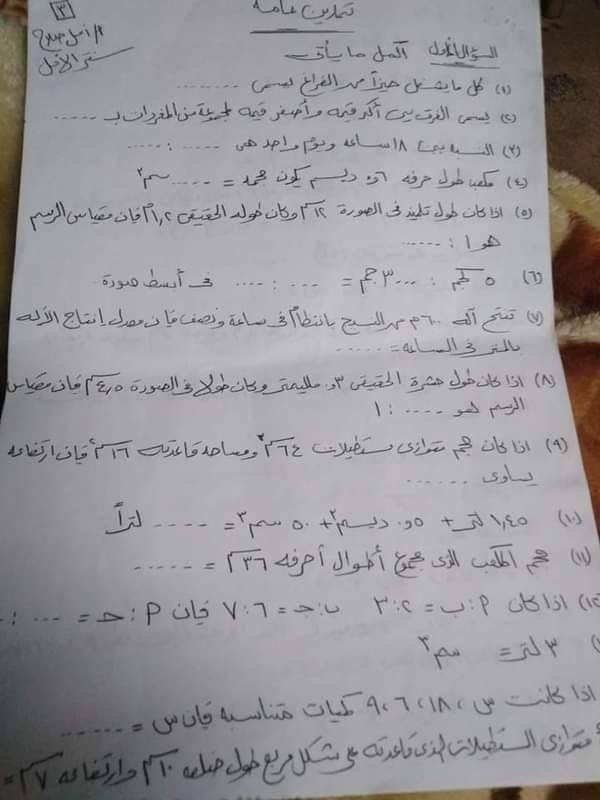 ٣
تمارين عامة
م/ أمل صلاح
سنتر الأمل
السؤال الأول أكمل ما يأتى
(١) كل ما يشغل حيزاً من الفراغ يسمى ........
(٢) يسمى الفرق بين أكبر قيمه وأصغر قيمه لمجموعة من المفردات بـ .....
(٣) النسبه بين ١٨ ساعه ويوم واحد هى ..... : .....
(٤) مكعب طول حرفه ٠,٦ ديسم يكون حجمه = ..... سم٣
(٥) اذا كان طول تلميذ فى الصورة ١٢سم وكان طوله الحقيقى ١,٢م فإن مقياس الرسم
هو ١ : ......
(٦) ٥ كجم : ٣٠٠٠ جم = .... : .... فى أبسط صورة
(٧) تنتج آله ٦٠٠م من النسيج بانتظام فى ساعة ونصف فإن معدل انتاج الآله
بالمتر فى الساعه = ......
(٨) اذا كان طول حشرة الحقيقى ٠,٣ ملليمتر وكان طولها فى الصورة ٤,٥سم فإن مقياس
الرسم هو .... : ١
(٩) اذا كان حجم متوازى مستطيلات ٦٤سم٣ ومساحه قاعدته ١٦سم٢ فإن ارتفاعه
يساوى ......
(١٠) ١,٤٥ لتر + ٠,٥ ديسم٣ + ٥٠ سم٣ = ..... لتراً
(١١) حجم المكعب الذى مجموع أطوال أحرفه ٣٦سم = ......
(١٢) اذا كان P : ب = ٢ : ٣ ب : حـ = ٦ : ٧ فإن P : حـ = ... : ...
٣ لتر = سم٣
اذا كانت س ، ١٨ ، ٦ ، ٩ كميات متناسبه فإن س = ......
متوازى المستطيلات الذى قاعدته على شكل مربع طول ضلعه ١٠سم وارتفاعه ٧سم =